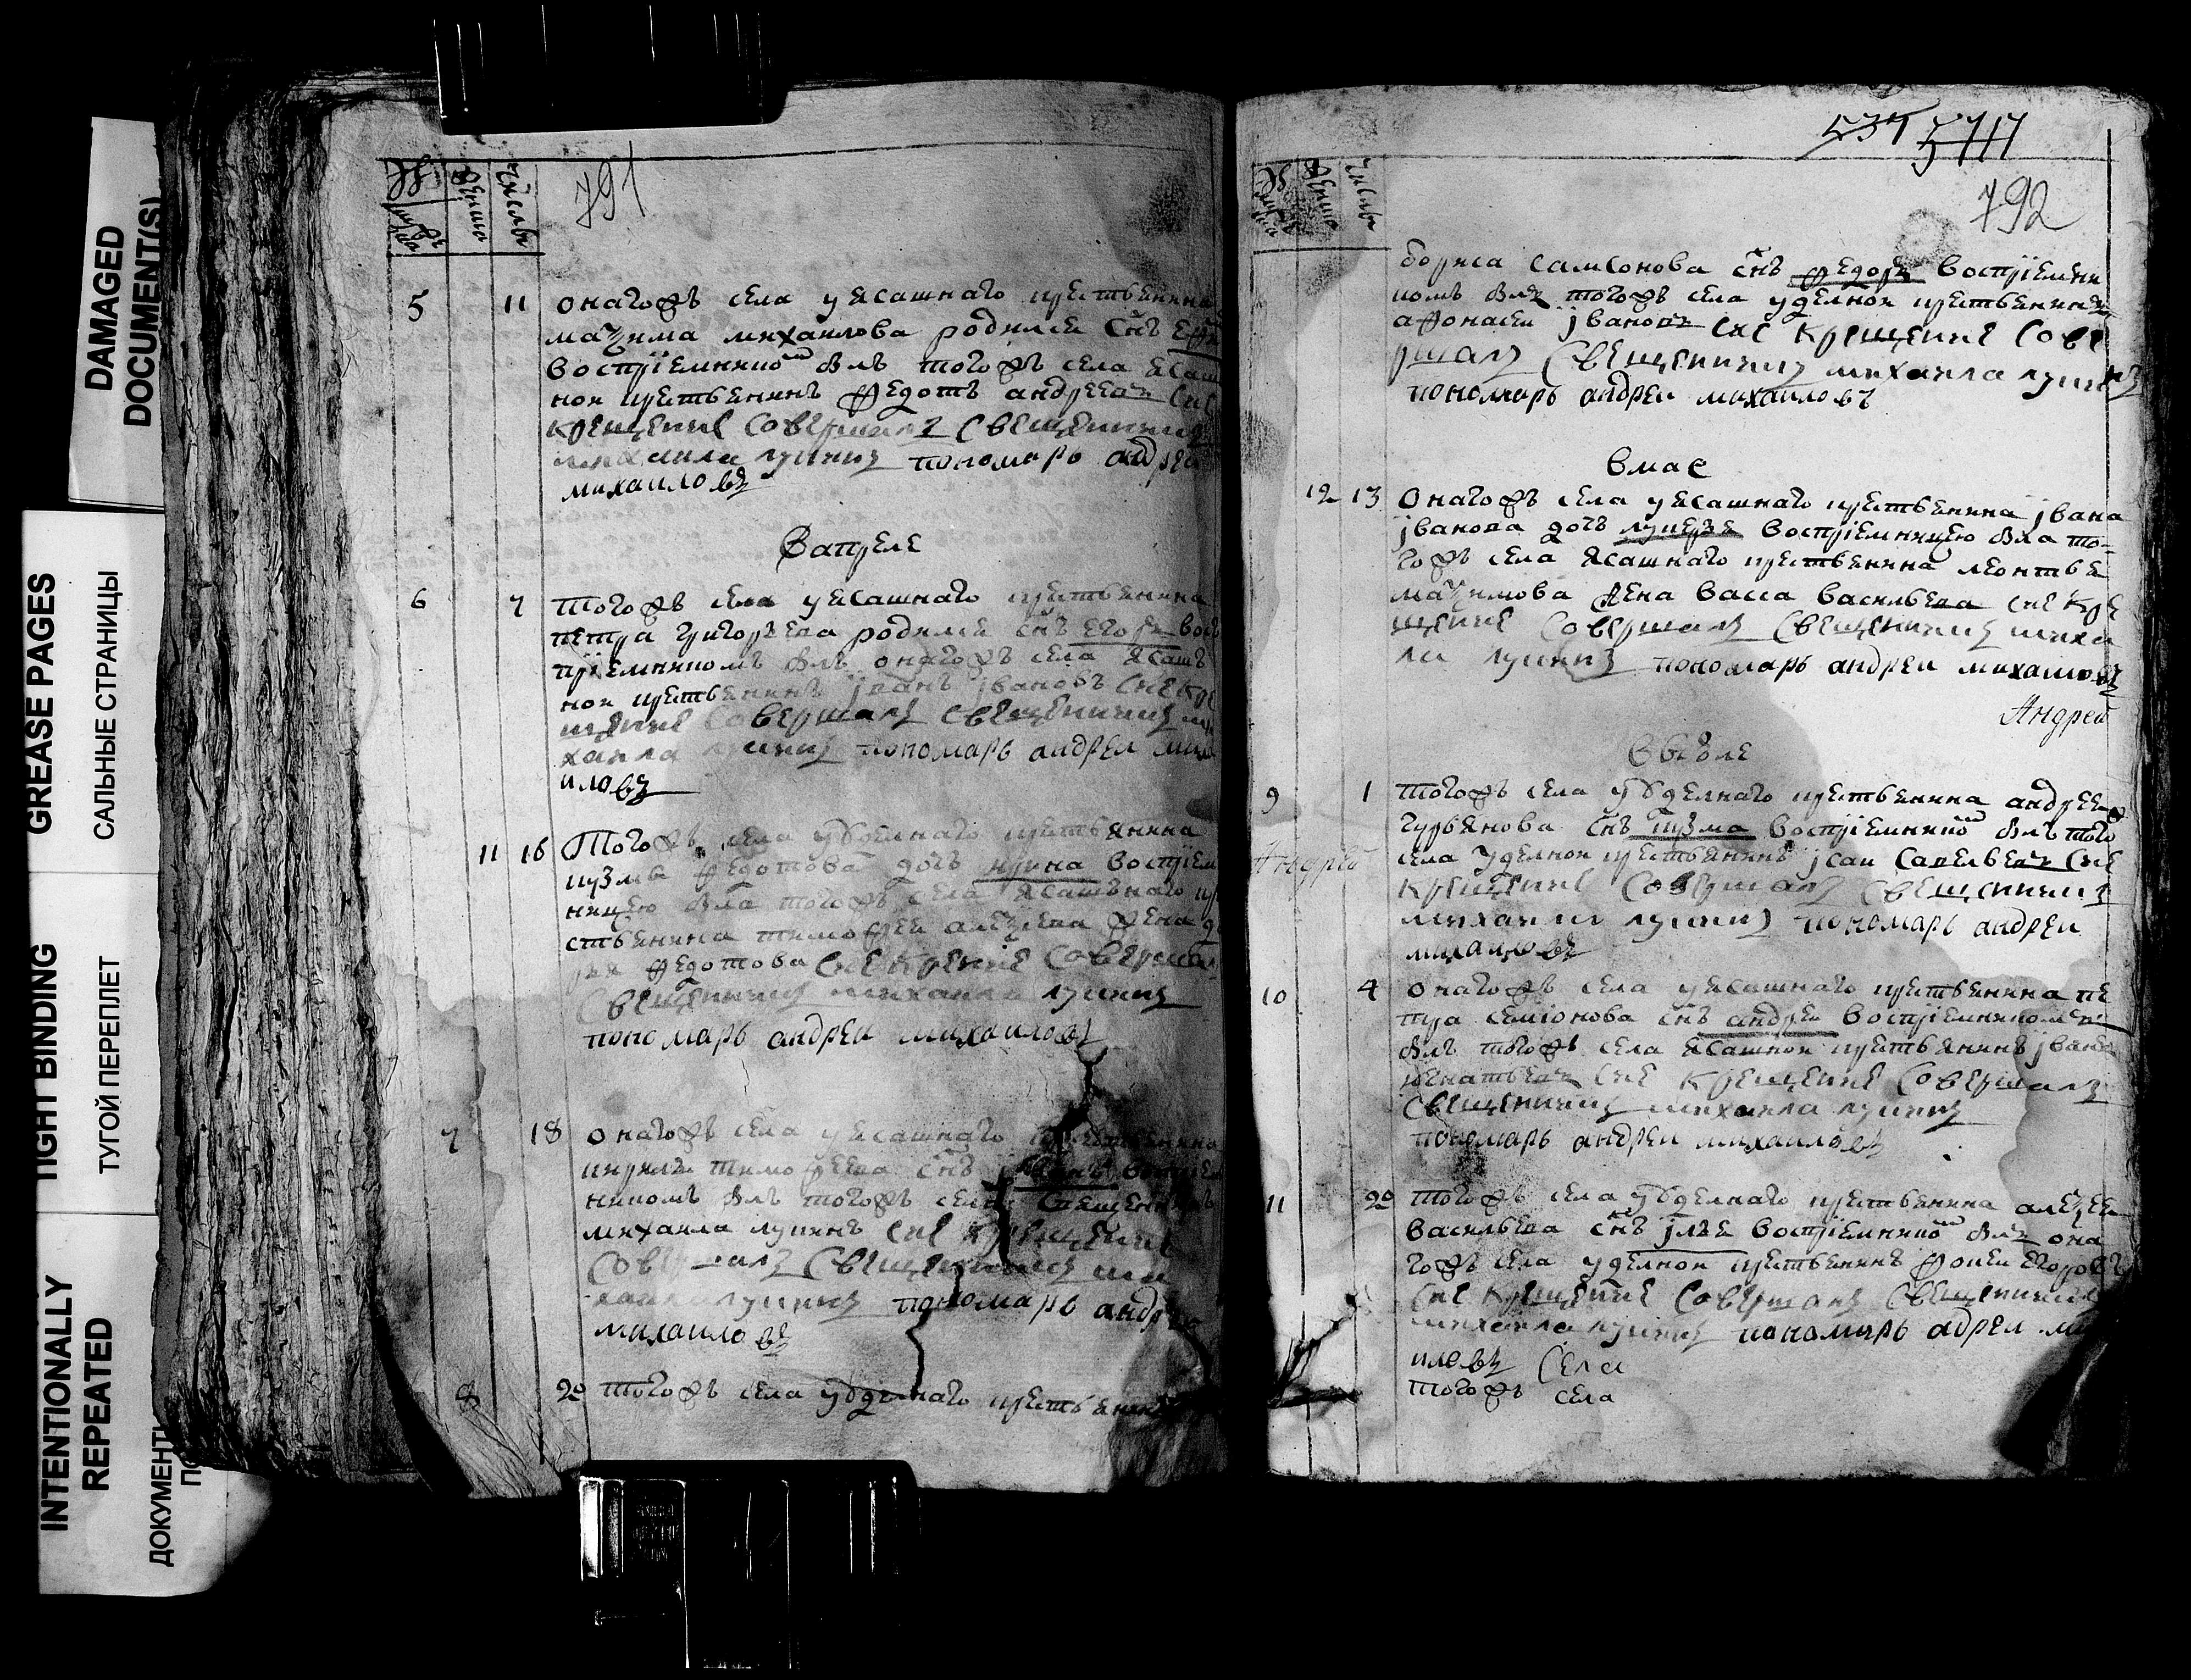 DAMAGED
DOCUMENT(S)
GREASE PAGES
САЛЬНЫЕ СТРАНИЦЫ
TIGHT BINDING
ТУГОЙ ПЕРЕПЛЕТ
INTENTIONALLY
REPEATED
ДОКУМЕНТ
791
5 11 онагожъ села уясашнаго крестьянина
маѯима михаилова родился снъ
воспріемнико былъ тогожъ села ясаш
ной крестьянинъ федотъ андреевъ сие
крещение совершалъ священникъ
михаила лукинъ пономарь андреи
михаиловъ
Вапреле
6 7 тогожъ села уясашнаго крестьянина
петра григорьева родился снъ егоръ вос
пріемникомъ былъ онагожъ села ясаш
ной крестьянинъ іванъ івановъ сие кре
щение совершалъ священникъ ми
хаила лукинъ пономарь андреи миха
иловъ
11 16 Тогожъ села уъделнаго крестьянина
кузмы федотова дочь ирина воспріем
ницею была тогожъ села ясашънаго кре
стьянина тимофея алеѯіева жена
федотова сие крещение совершал
священникъ михаила лукинъ
пономарь андреи михаиловъ
7 18 онагожъ села уясашнаго крестьянина
кирила тимофеева снъ іванъ воспріем
никомъ былъ тогожъ села священникъ
михаила лукинъ сие крещение
совершалъ священникъ ми
хаила лукинъ пономарь андреи
михаиловъ
8 20 тогожъ села уъделнаго крестьянина
537 5717
792
бориса самсонова снъ федоръ воспріемни
комъ былъ тогожъ села уделной крестьянинъ
афонасеи івановъ сие крещение сове
ршалъ священникъ михаила лукинъ
пономарь андреи михаиловъ
вмае
12 13 Онагожъ села уясашнаго крестьянина івана
іванова дочь лукерья воспріемницею была то
гожъ села ясашнаго крестьянина леонтья
маѯимова жена васса васильева сие кре
щение совершалъ священникъ миха
ила лукинъ пономарь андреи михаиловъ
Андрей
9 1 тогожъ села уъделнаго крестьянина андрея
гурьянова снъ кузма воспріемнико былъ того
Андрей
села уделной крестьянинъ ісаи савельевъ сие
крещение совершалъ священникъ
михаила лукинъ пономарь андреи
михаиловъ
10 4 онагожъ села уясашнаго крестьянина пе
тра семіонова снъ андреи воспріемникомъ
былъ тогожъ села ясашной крестьянинъ іванъ
игнатьевъ сие крещение совершалъ
священникъ михаила лукинъ
пономарь андреи михаиловъ
11 20 тогожъ села уъделнаго крестьянина алеѯея
васильева снъ ілья воспріемнико былъ она
гожъ села уделной крестьянинъ фокеи егоровъ
сие крещение совершалъ священникъ
михаила лукинъ пономарь адреи ми
иловъ села
тогожъ села